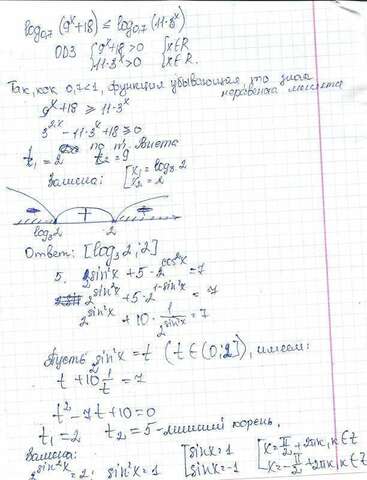 log₀,₇(9ˣ+18) ≤ log₀,₇(11·3ˣ)
ОДЗ { 9ˣ+18>0 { x∈R
11·3ˣ>0 x∈R.
Так, как 0,7<1, функция убывающая, то знак
неравенства меняется
9ˣ+18 ≥ 11·3ˣ
3²ˣ-11·3ˣ+18≥0
t₁=2 t₂=9 по т. Виета
Замена: [ x₁=log₃2
x₂=2
+
log₃2 2
Ответ: [log₃2; 2]
5. 2^sin²x + 5·2^cos²x = 7
2^sin²x + 5·2^1-sin²x = 7
2^sin²x + 10· 1/2^sin²x = 7
Пусть 2^sin²x = t (t∈(0;2]), имеем:
t+10 1/t = 7
t²-7t+10=0
t₁=2 t₂=5-лишний корень.
Замена:
2^sin²x=2; sin²x=1 [ sinx=1 [ x=π/2+2πk, k∈z
sinx=-1 x=-π/2+2πk, k∈z